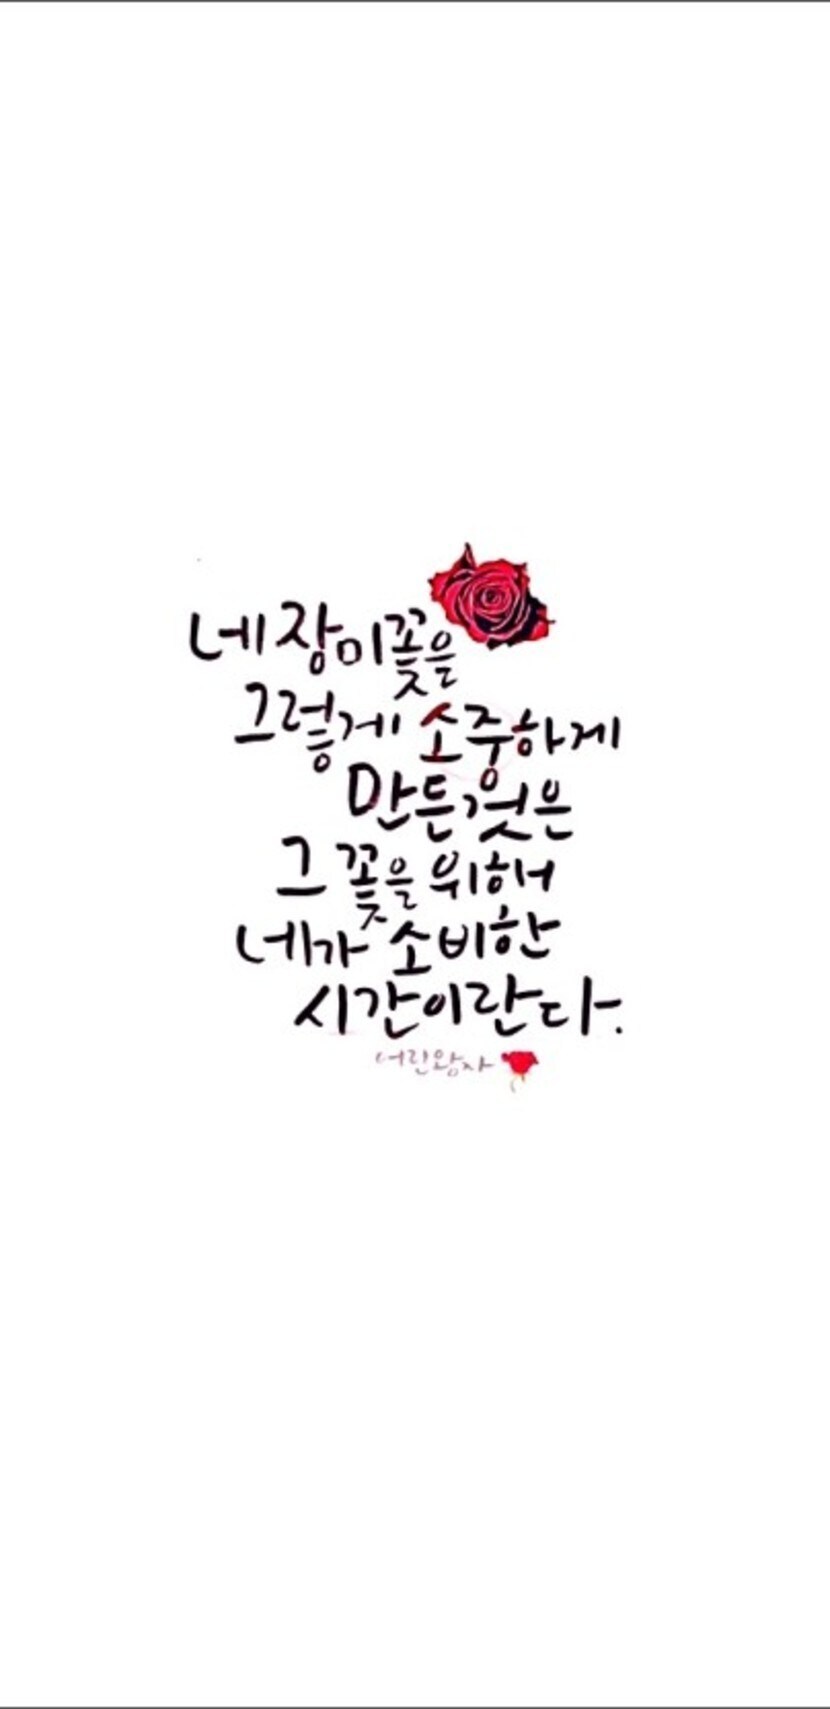 네 장미꽃을
그렇게 소중하게
만든것은
그 꽃을 위해
네가 소비한
시간이란다.
어린왕자